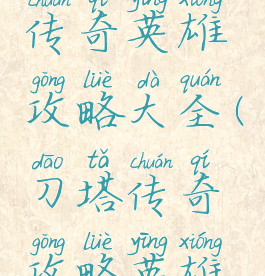 chuán qí yīng xióng
传奇英雄
gōng lüè dà quán
攻略大全(
dāo tǎ chuán qí
刀塔传奇
gōng lüè yīng xióng
攻略英雄